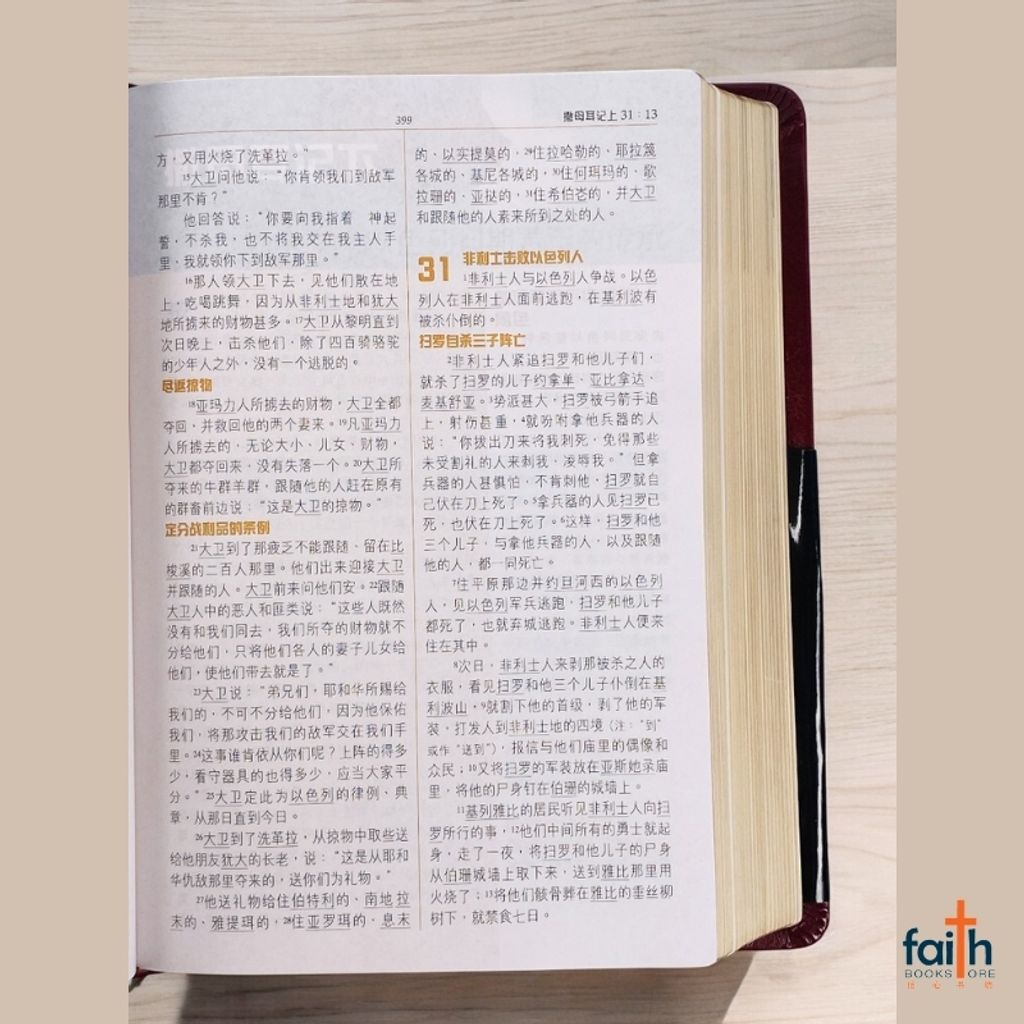 399
撒母耳记上 31：13
方，又用火烧了洗革拉。”
15大卫问他说：“你肯领我们到敌军
那里不肯？”
他回答说：“你要向我指着　神起
誓，不杀我，也不将我交在我主人手
里，我就领你下到敌军那里。”
16那人领大卫下去，见他们散在地
上，吃喝跳舞，因为从非利士地和犹大
地所掳来的财物甚多。17大卫从黎明直到
次日晚上，击杀他们，除了四百骑骆驼
的少年人之外，没有一个逃脱的。
尽返掠物
18亚玛力人所掳去的财物，大卫全都
夺回，并救回他的两个妻来。19凡亚玛力
人所掳去的，无论大小、儿女、财物，
大卫都夺回来，没有失落一个。20大卫所
夺来的牛群羊群，跟随他的人赶在原有
的群畜前边说：“这是大卫的掠物。”
定分战利品的条例
21大卫到了那疲乏不能跟随、留在比
梭溪的二百人那里。他们出来迎接大卫
并跟随的人。大卫前来问他们安。22跟随
大卫人中的恶人和匪类说：“这些人既然
没有和我们同去，我们所夺的财物就不
分给他们，只将他们各人的妻子儿女给
他们，使他们带去就是了。”
23大卫说：“弟兄们，耶和华所赐给
我们的，不可不分给他们，因为他保佑
我们，将那攻击我们的敌军交在我们手
里。24这事谁肯依从你们呢？上阵的得多
少，看守器具的也得多少，应当大家平
分。”25大卫定此为以色列的律例、典
章，从那日直到今日。
26大卫到了洗革拉，从掠物中取些送
给他朋友犹大的长老，说：“这是从耶和
华仇敌那里夺来的，送你们为礼物。”
27他送礼物给住伯特利的、南地拉
末的、雅提珥的，28住亚罗珥的、息末
的、以实提莫的，29住拉哈勒的、耶拉篾
各城的、基尼各城的，30住何珥玛的、歌
拉珊的、亚挞的，31住希伯崙的，并大卫
和跟随他的人素来所到之处的人。
31 非利士击败以色列人
1非利士人与以色列人争战。以色
列人在非利士人面前逃跑，在基利波有
被杀仆倒的。
扫罗自杀三子阵亡
2非利士人紧追扫罗和他儿子们，
就杀了扫罗的儿子约拿单、亚比拿达、
麦基舒亚。3势派甚大，扫罗被弓箭手追
上，射伤甚重，4就吩咐拿他兵器的人
说：“你拔出刀来将我刺死，免得那些
未受割礼的人来刺我，凌辱我。”但拿
兵器的人甚惧怕，不肯刺他，扫罗就自
己伏在刀上死了。5拿兵器的人见扫罗已
死，也伏在刀上死了。6这样，扫罗和他
三个儿子，与拿他兵器的人，以及跟随
他的人，都一同死亡。
7住平原那边并约旦河西的以色列
人，见以色列军兵逃跑，扫罗和他儿子
都死了，也就弃城逃跑。非利士人便来
住在其中。
8次日，非利士人来剥那被杀之人的
衣服，看见扫罗和他三个儿子仆倒在基
利波山，9就割下他的首级，剥了他的军
装，打发人到非利士地的四境（注：“到”
或作“送到”），报信与他们庙里的偶像和
众民；10又将扫罗的军装放在亚斯她录庙
里，将他的尸身钉在伯珊的城墙上。
11基列雅比的居民听见非利士人向扫
罗所行的事，12他们中间所有的勇士就起
身，走了一夜，将扫罗和他儿子的尸身
从伯珊城墙上取下来，送到雅比那里用
火烧了；13将他们骸骨葬在雅比的垂丝柳
树下，就禁食七日。
faith
BOOKSTORE
信心书坊